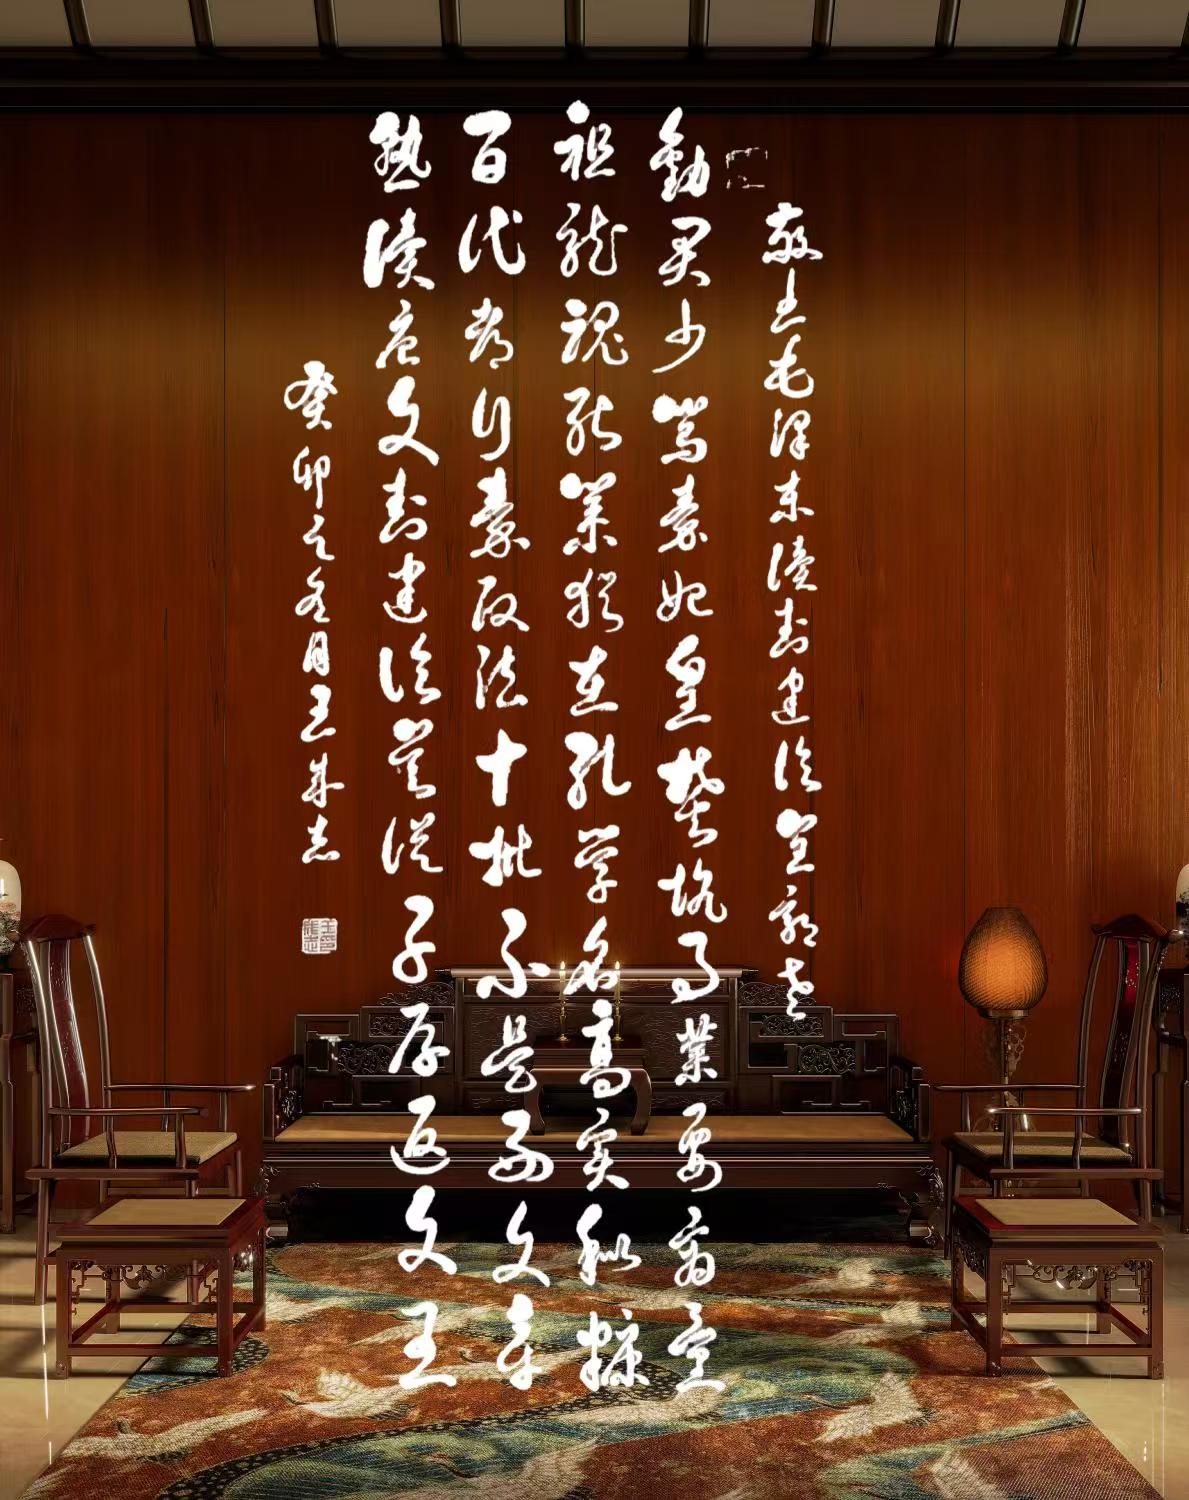 敬上毛泽东读封建论呈郭老
勸君少骂秦始皇焚坑事業要商量
祖龙魂死秦犹在孔学名高实秕糠
百代都行秦政法十批不是好文章
熟读唐文封建论莫从子厚返文王
癸卯之冬月王成志